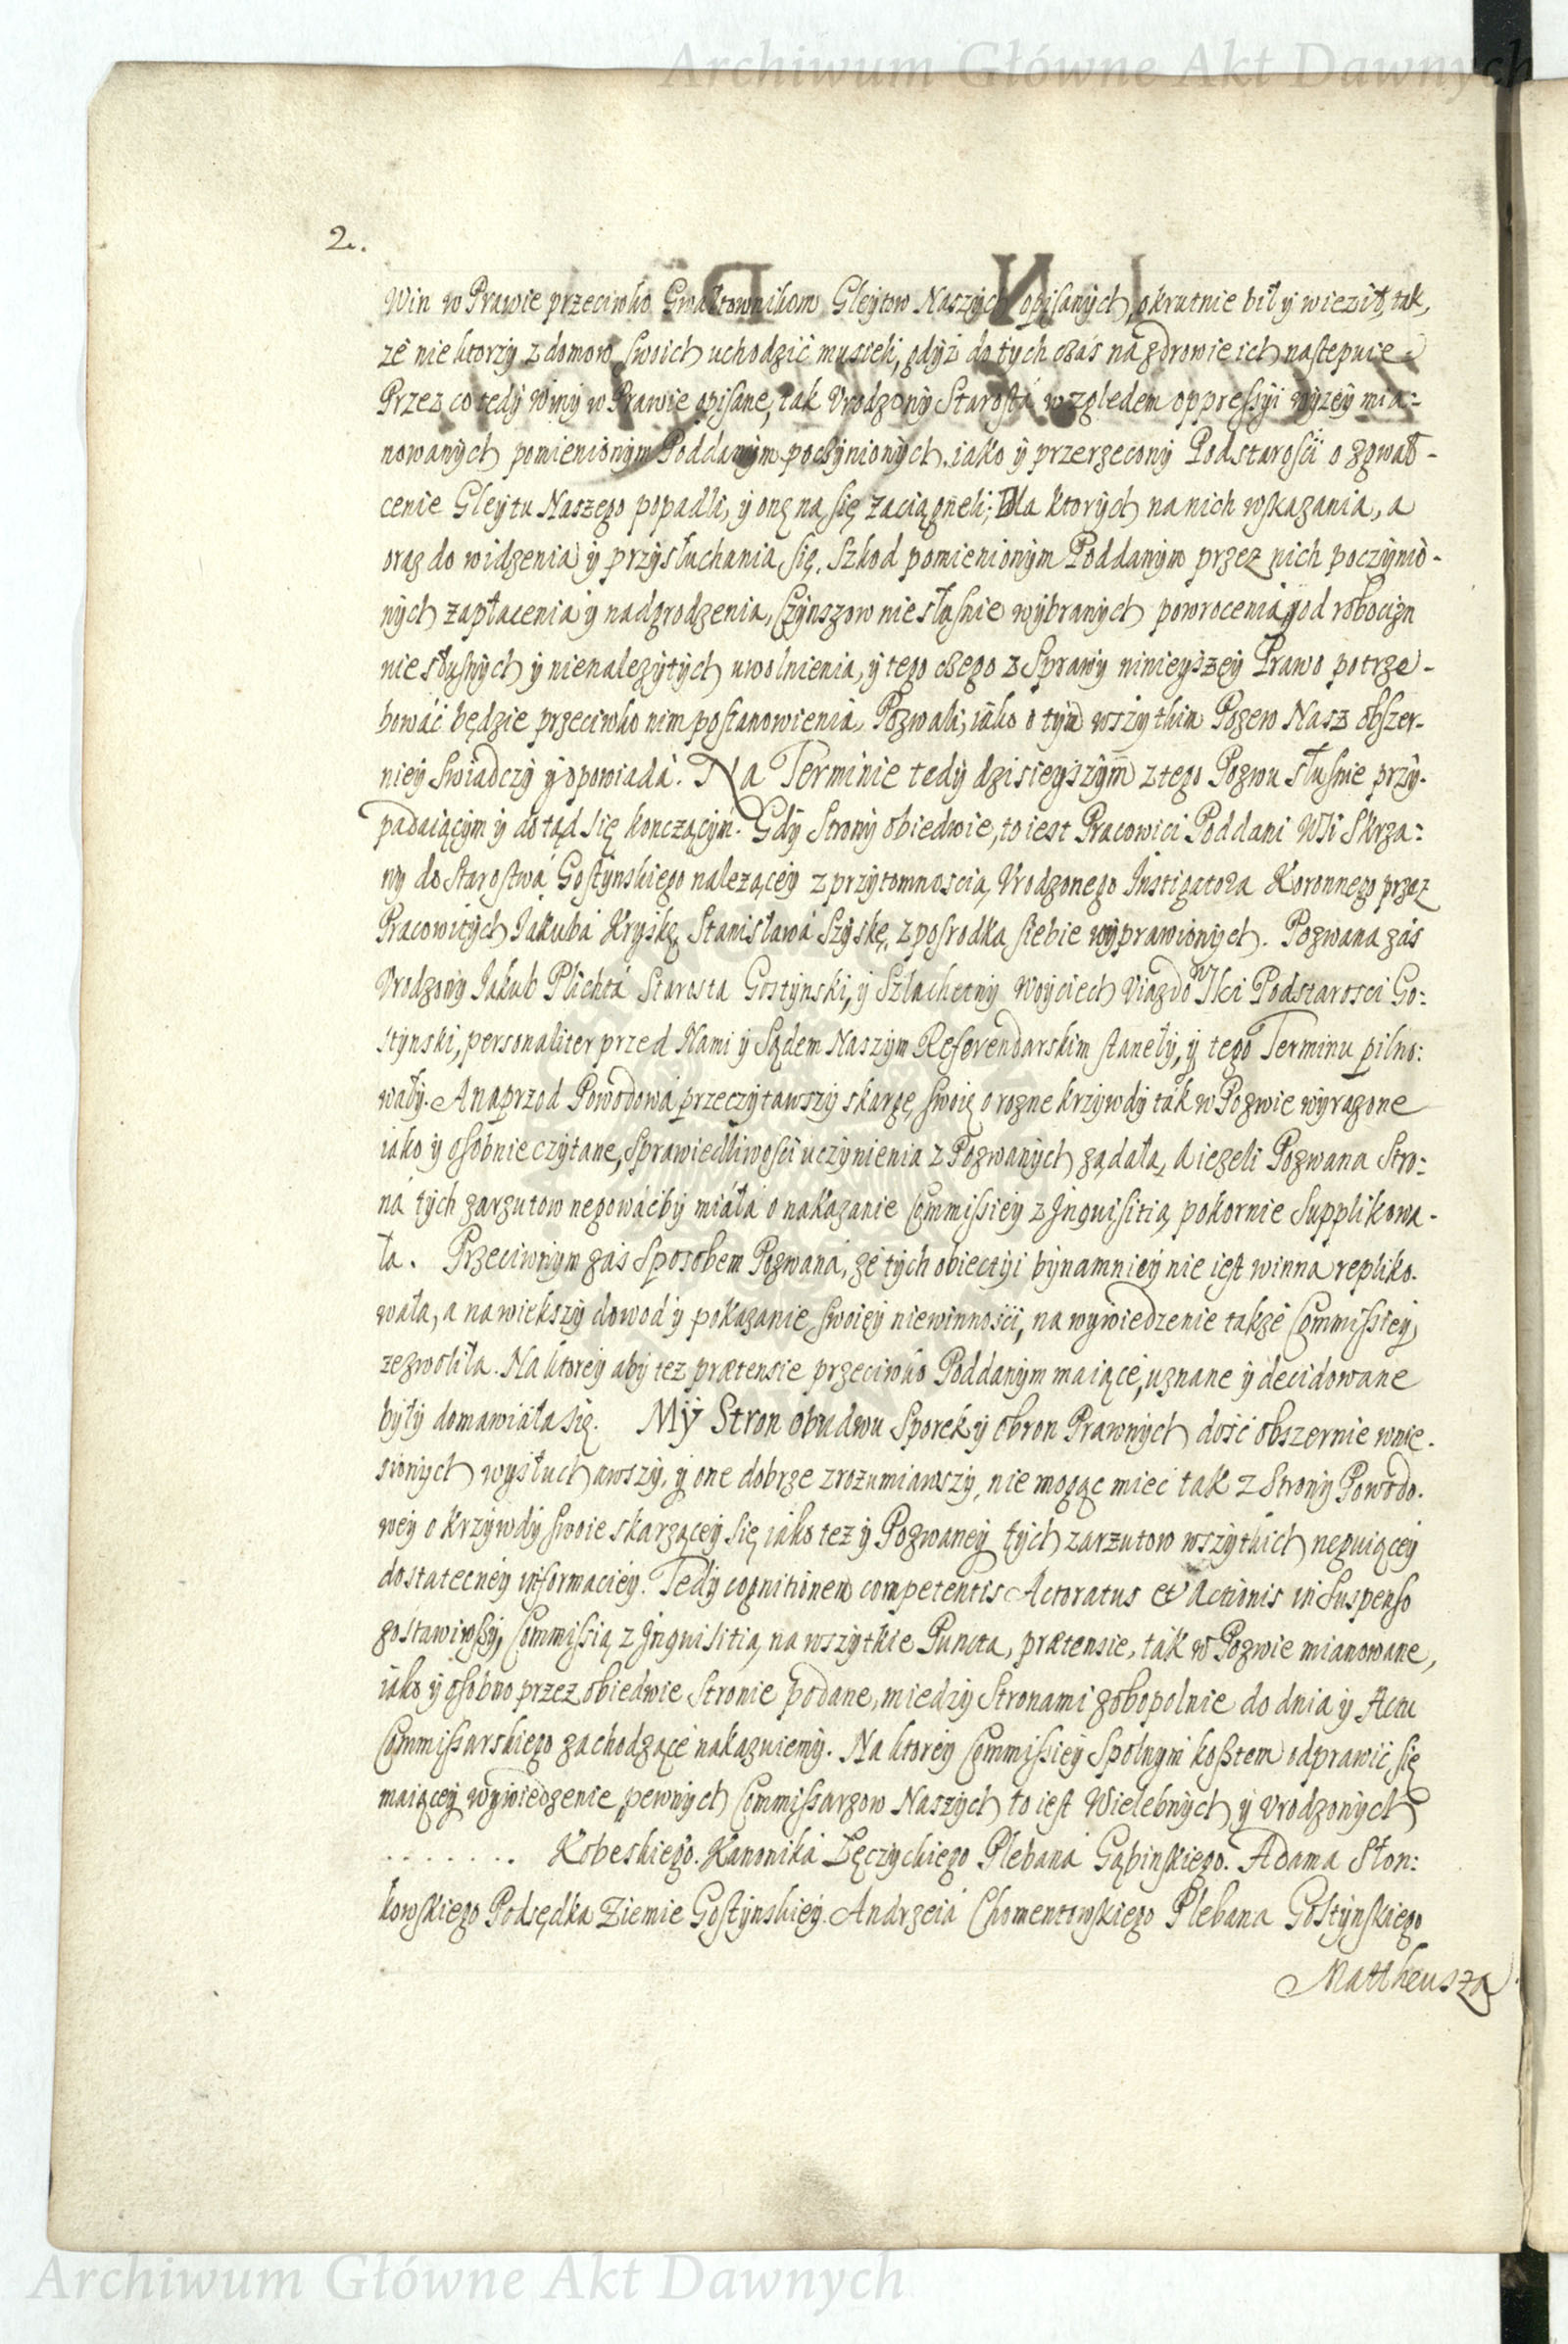 Archiwum Główne Akt Dawnych
2.
Win w Prawie przeciwko Gwałtownikom Gleytow Naszych opisanych, okrutnie bił y wieził, tak,
że niektorzy z domow swoich uchodzić musieli, gdyż do tych czás ná zdrowie ich nastepuie.
Przez co tedy winy w Prawie opisane, tak Vrodzony Starostá względem oppressyi wyzey mia=
nowanych pomienionym Poddanym poczynionych, iako y przerzeczony Podstarości o zgwał-
cenie Gleytu Naszego popadli, y one na się zaciągneli; Dla ktorych na nich wskazania, a
oraz do widzenia y przysłuchania się, szkod pomienionym Poddanym przez nich poczynio-
nych zapłacenia y nadgrodzenia, Czynszow niesłusnie wybranych powrocenia, y od robocizn
niesłusnych y nienależytych uwolnienia, y tego czego z Sprawy ninieyszey Prawo potrze-
bowáć będzie przeciwko nim postanowienia, Pozwali; iáko o tym wszytkim Pozew Nasz obszer-
niey świadczy y opowiada. Na Terminie tedy dzisieyszym z tego Pozwu słusnie przy-
padaiącym y dotąd się konczącym. Gdy Strony obiedwie, to iest Pracowici Poddani Wsi Skrza=
ny do Starostwá Gostynskiego nalezącéy z przytomnoscią, Vrodzonego Instigatora Koronnego przez
Pracowitych Iakubá Kryskę, Stanisławá Szyskę, z posrodka siebie wyprawionych. Pozwana zás
Vrodzony Iakub Plichtá Starosta Gostynski, y Szlachetny Woyciech Viazdowski Podstarosci Go=
stynski, personaliter przed Nami y Sądem Naszym Referendarskim staneły, y tego Terminu pilno=
wały. A naprzod Powodowá przeczytawszy skargę swoię o rozne krzywdy ták w Pozwie wyrazone
iáko y osobnie czytane, sprawiedliwości uczynienia z Pozwanych ządała, A iezeli Pozwana Stro=
ná tych zarzutow negowáćby miáła o nakazanie Commissiey z Inquisitią pokornie supplikowa-
ła. Przeciwnym zás sposobem Pozwaná, że tych obiectyi bynamniéy nie iest winna repliko-
wała, a na wiekszy dowod y pokazanie swoiey niewinności, na wywiedzenie także Commissiey
zezwoliła. Na ktorey aby tez prætensie przeciwko Poddanym maiące, uznane y decidowane
były domawiáła się. My Stron obudwu Sporek y obron Prawnych dość obszernie wnie-
sionych wysłuchawszy, y one dobrze zrozumiawszy, nie mogąc mieć tak z Strony Powodo-
wey o krzywdy swoie skarzącey się iáko tez y Pozwaney tych zarzutow wszytkich neguiącey
dostatecznéy informaciéy. Tedy cognitionem competentis Actoratus et Actionis in suspenso
zostawiwszy, Commissią z Inquisitią na wszytkie Puncta, prætensie, ták w Pozwie mianowane,
iáko y osobno przez obiedwie stronie podane, miedzy Stronami zobopolnie do dnia y Actu
Commissarskiego zachodzące nakazuiemy. Na ktorey Commissiey spolnym kosztem odprawić się
maiącey wywiedzenie, pewnych Commissarzow Naszych to iest Wielebnych y Vrodzonych
. . . . . . . Kobeskiego. Kanoniká Łęczyckiego Plebaná Gąbinskiego. Adama Słon=
kowskiego Podsędka Ziemie Gostynskiéy. Andrzeiá Chomentowskiego Plebana Gostynskiego
Mattheusza
Archiwum Główne Akt Dawnych